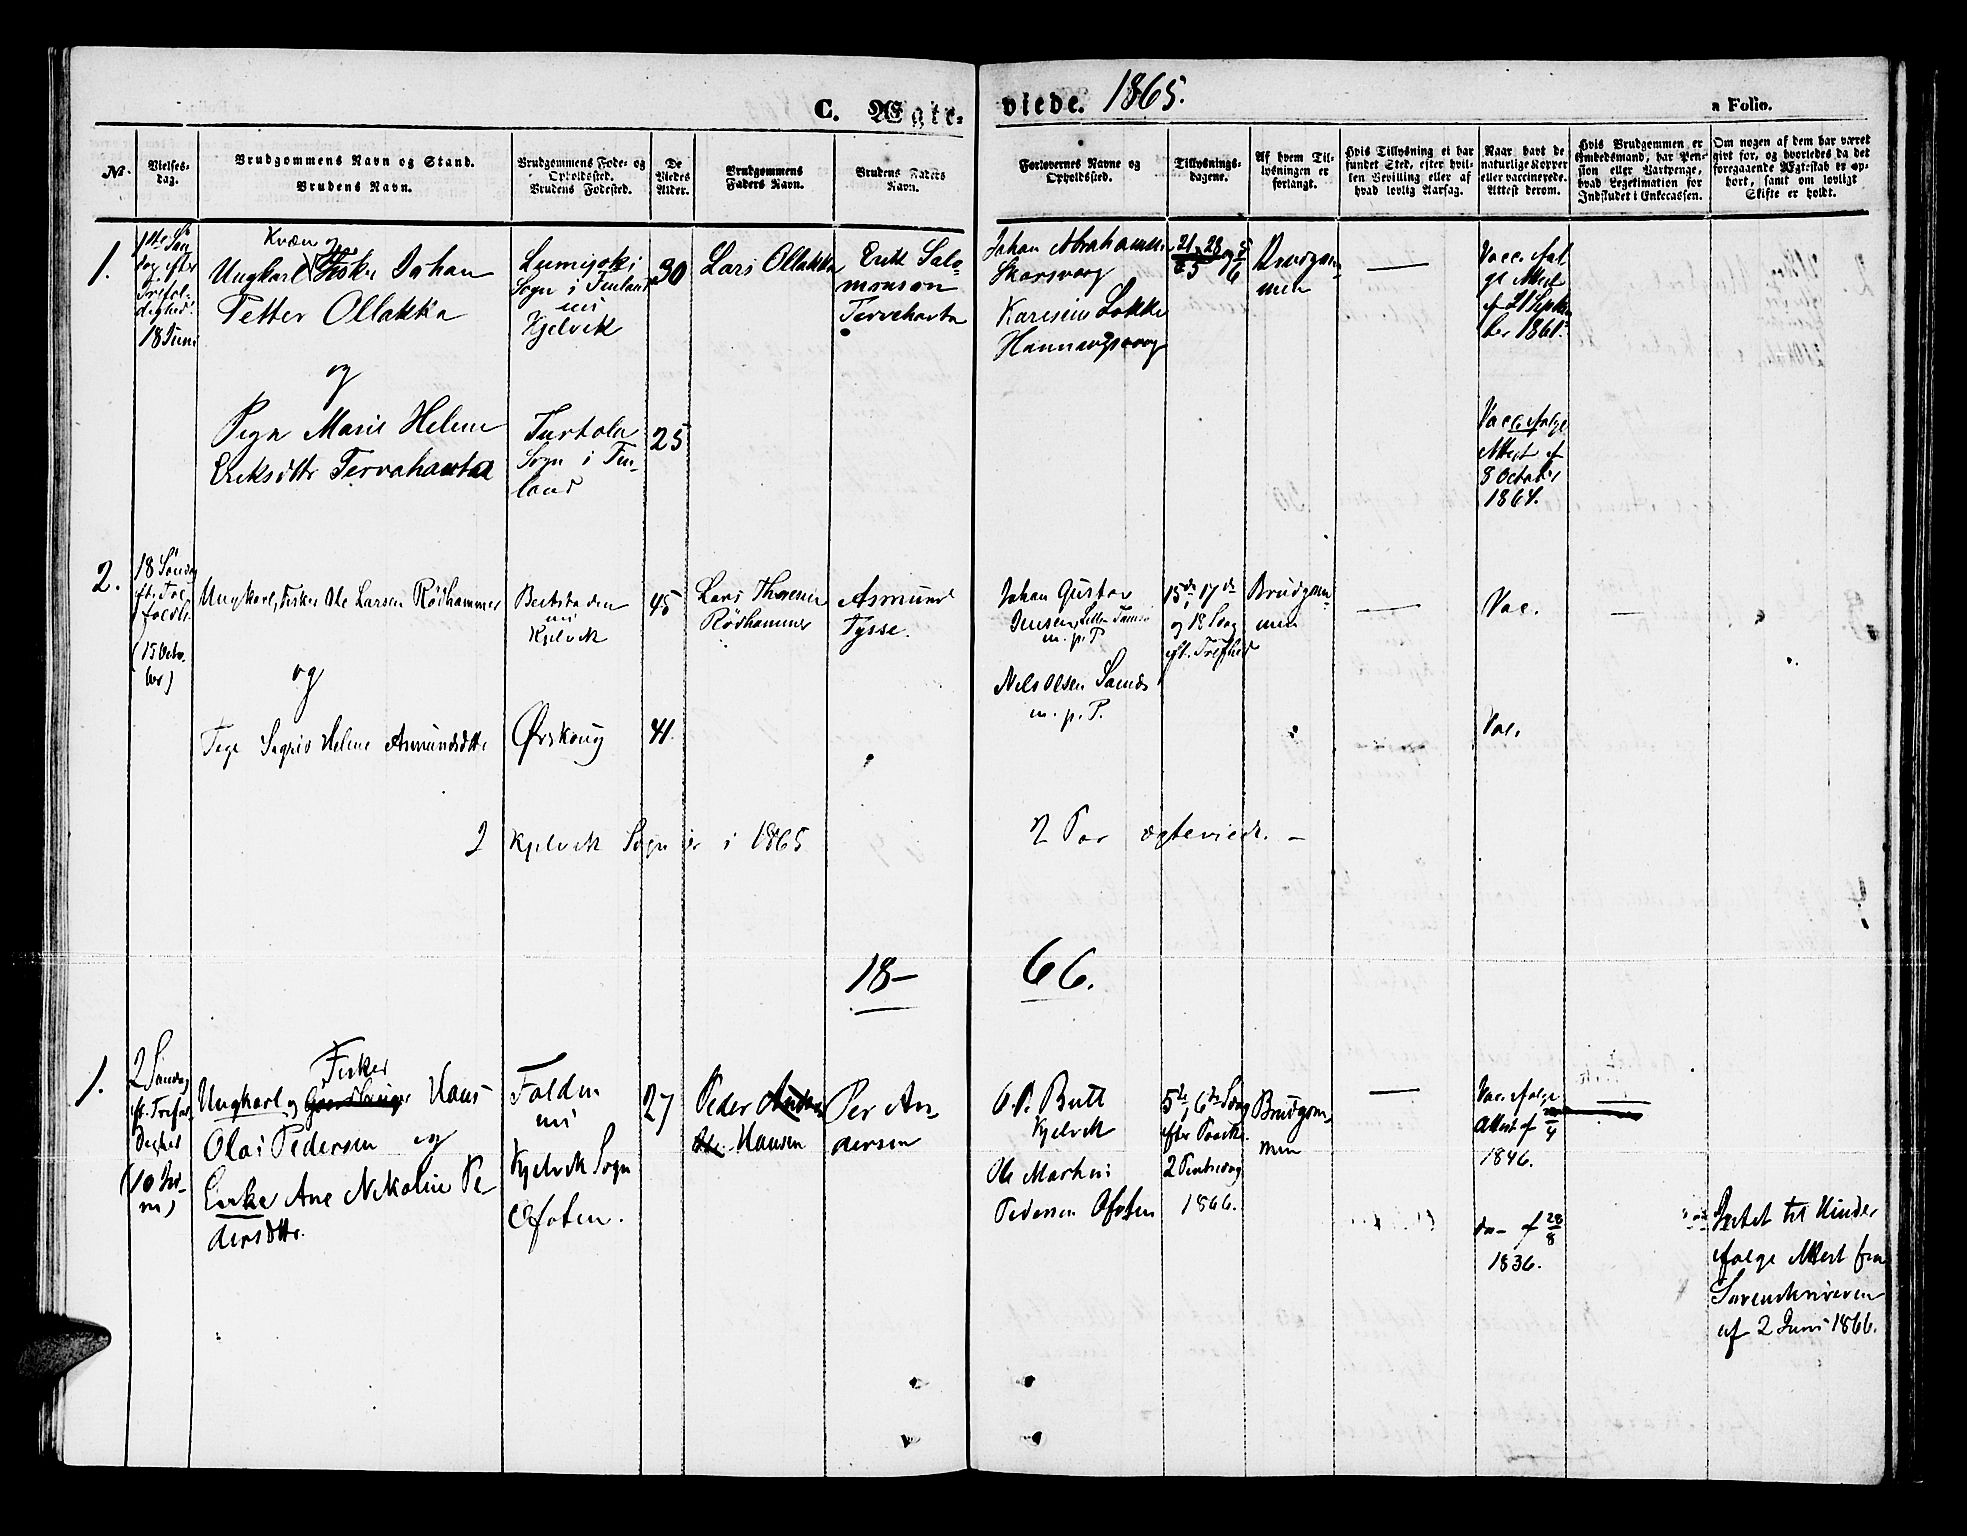 C. Ægte-
viede. 1865.
a Folio.
№.
Vielses-
dag.
Brudgommens Navn og Stand.
Brudens Navn.
Brudgommens Føde- og
Opholdssted.
Brudens Fødested.
De
Viedes
Alder.
Brudgommens
Faders Navn.
Brudens Faders
Navn.
Forlovernes Navne og
Opholdssted.
Tillysnings-
dagene.
Af hvem Til-
lysningen er
forlangt.
Hvis Tillysning ei har
fundet Sted, efter hvil-
ken Bevilling eller af
hvad lovlig Aarsag.
Naar havt de
naturlige Kopper
eller vaccinerede.
Attest derom.
Hvis Brudgommen er
Embedsmand, har Pen-
sion eller Vartpenge,
hvad Legitimation for
Indskudet i Enkecassen.
Om nogen af dem har været
givt for, og hvorledes da det
foregaaende Ægteskab er op-
hørt, samt om lovligt
Skifte er holdt.
1.
1ste Søn
dag efter
Trefol-
dighed.
18 Juni
Kvæn og
Ungkarl Fisker Johan
Petter Ollakka
og
Pige Marie Helene
Eriksdtr Tervahauta
Lumijoki
Sogn i Finland
Kjelvik
Turtola
Sogn i Fin-
land
30
25
Lars Ollakka
Erik Salo-
monson
Tervehauta
Johan Abrahamsen
Skarsvaag
Lokke
Honningsvaag
21 28 og 5
5 6
Brudgom-
men
—
Vacc. føl
ge Attest
af 21 Septem
ber 1861.
Vacc. følge
Attest af
8 October
1864.
2.
18 Søndag
ft. Tre-
foldh.
(15 Octo-
ber)
Ungkarl, Fisker Ole Larsen Rødhammer
og
Pige Sigrid Helene Asmundsdtr.
Kjelvik
Ørskoug
45
41.
Lars
Rødhammer
Asmund
Tysse.
Johan Gustav
Jensen
m. p. P.
Nils Olsen
m. p. P.
15de, 17de
og 18 Sdag
eft. Trefhed
Brudgom-
men
—
Vac.
Vac.
—
I Kjelvik Sogn er i 1865
2 Par ægteviede. –
18–
66.
1.
2 Søndag
ft. Trefol-
dighed
(10 Ju-
ni)
Fisker
Ungkarl og Hans
Olai Pedersen og
Enke Ane Nikoline Pe
dersdtr.
Folden
Kjelvik Sogn
Ofoten.
27
Peder
Hansen
Per An
dersen
O. P. Butt
Kjelvik
Ole Martin
Pedersen Ofoten
5te, 6te Sdag
efter Paaske
2 Pintsedag
1866.
Brudgom-
men
—
Vac. følge
Attest af
1846.
do – af 28/8
1836.
—
Intet til Hinder
ifølge Attest fra
Sorenskriveren
af 2 Juni 1866.